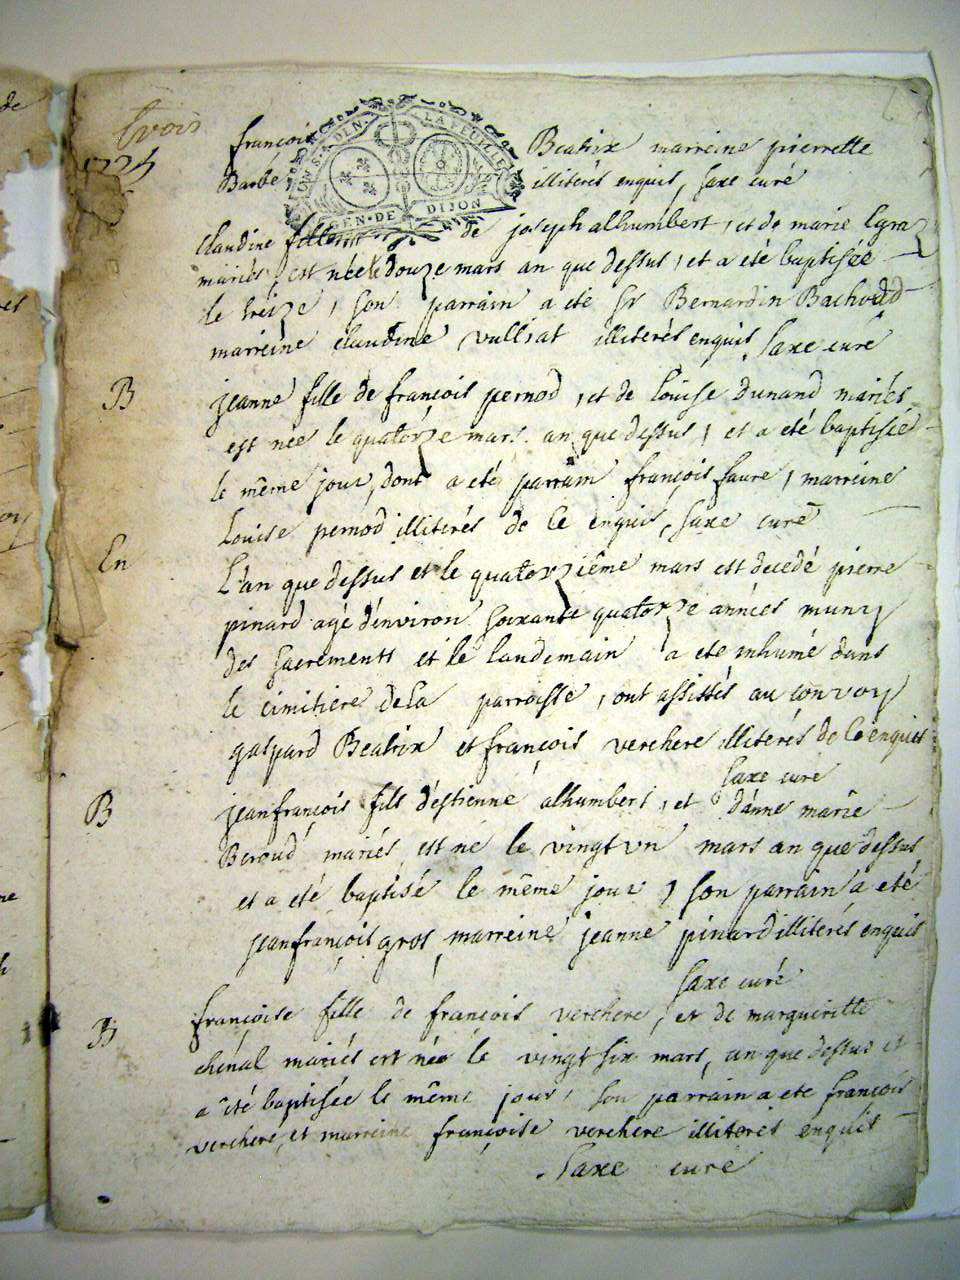 1775
françois Beatrix marreine pierrette
Barbe illiterés enquis, saxe curé
claudine fille de joseph alhumbert, et de marie
mariés, est née le douze mars an que dessus, et a été baptisée
le treize, son parrain a eté Sr Bernardin
marreine claudine vulliat illiterés enquis saxe curé
B
jeanne fille de françois pernod, et de louise dunand mariés
est née le quatorze mars an que dessus, et a eté baptisée
le même jour, dont a eté parrain françois faure, marreine
louise pernod illiterés de ce enquis, saxe curé
En
L'an que dessus et le quatorzième mars est decedé pierre
pinard agé d'environ soixante quatorze années muny
des sacrements et le landemain a eté inhumé dans
le cimitiere de la parroisse, ont assistés au convoy
gaspard Beatrix et françois verchere illiterés de ce enquis
saxe curé
B
jeanfrançois fils d'estienne alhumbert, et d'anne marie
Beroud mariés est né le vingt un mars an que dessus
et a eté baptisé le même jour, son parrain a eté
jeanfrançois gros, marreine jeanne pinard illiterés enquis
saxe curé
B
françoise fille de françois verchere, et de margueritte
chenal mariés est née le vingt six mars, an que dessus et
a été baptisée le même jour, son parrain a eté françois
verchere, et marreine françoise verchere illiterés enquis
saxe curé
LA FEUILLE
GEN · DE DIJON